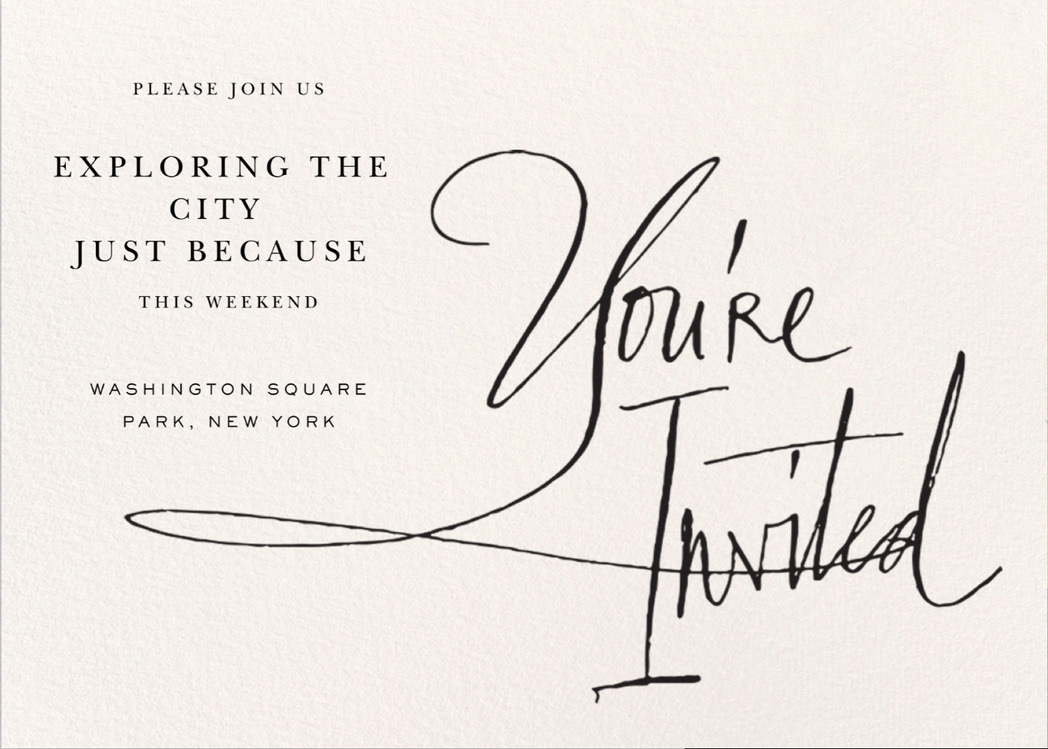 PLEASE JOIN US
EXPLORING THE
CITY
JUST BECAUSE
THIS WEEKEND
WASHINGTON SQUARE
PARK, NEW YORK
You're
Invited